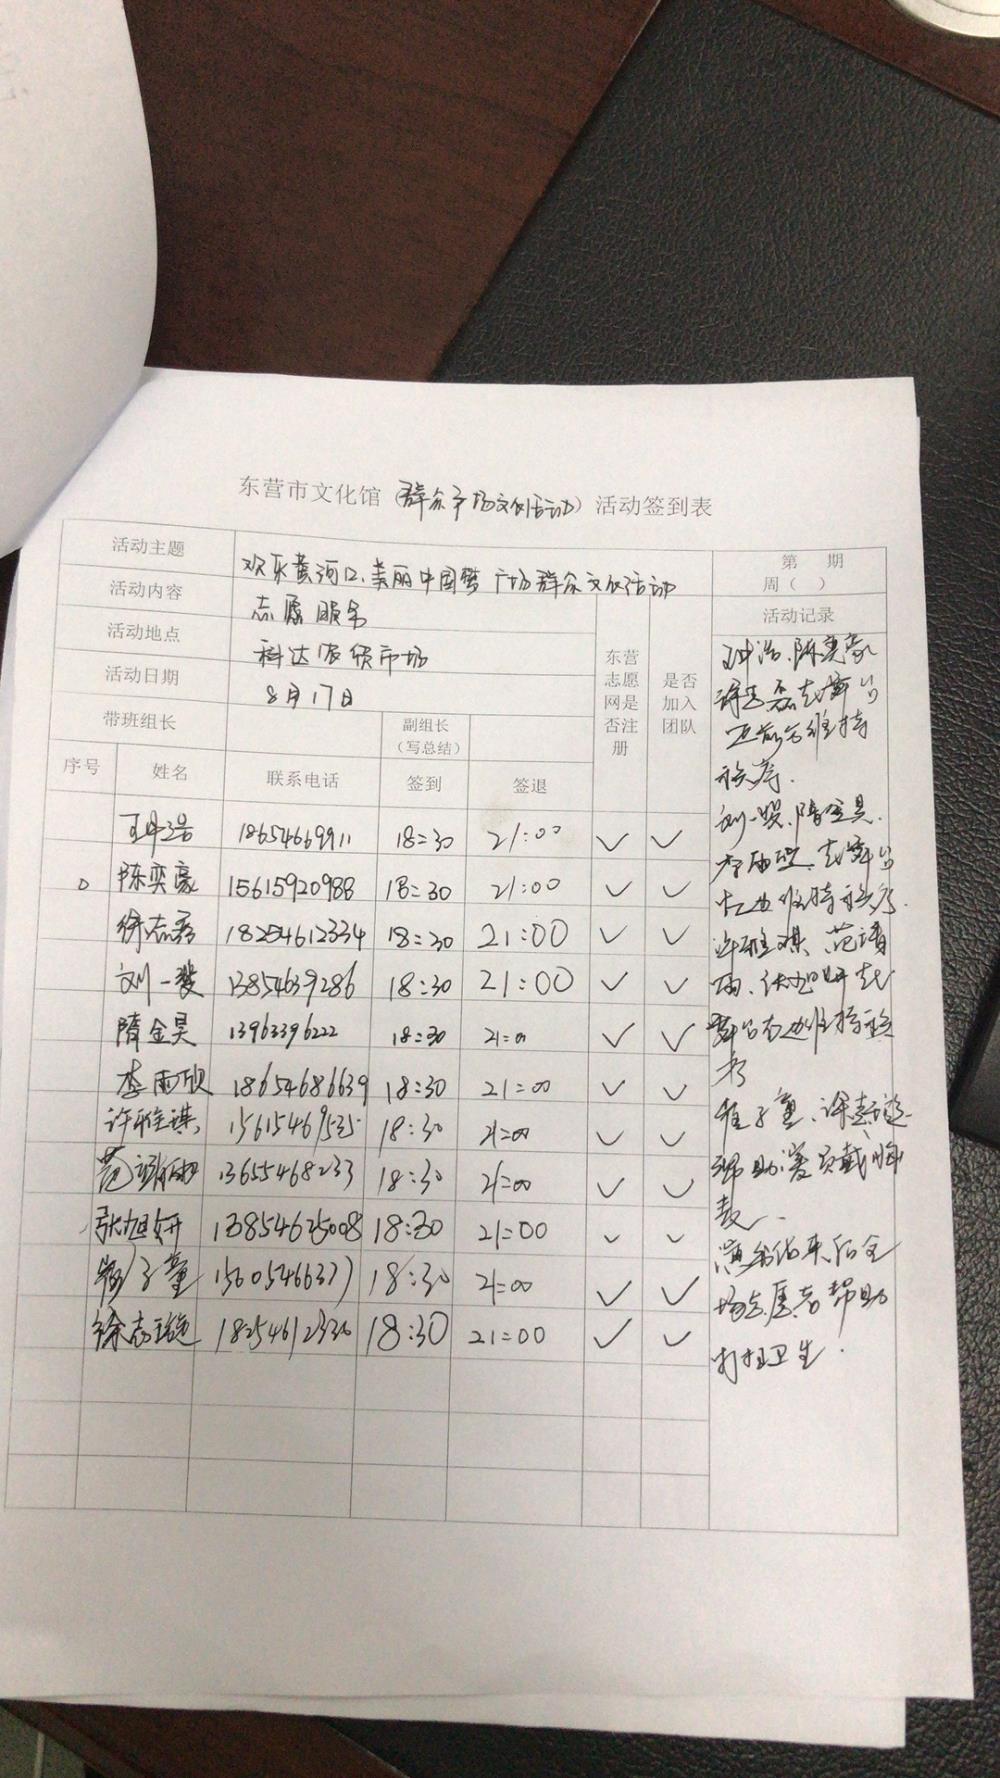 东营市文化馆（群众广场文化活动）活动签到表
活动主题 欢乐黄河口、美丽中国梦 广场群众文化活动 第 期
周（ ）
活动内容 志愿服务 活动记录
活动地点 科达农贸市场
活动日期 8月17日
东营志愿网是否注册 是否加入团队
带班组长 副组长（写总结）
序号 姓名 联系电话 签到 签退
18654669911 18:30 21:00 ✓ ✓
陈奕豪 15615920988 18:30 21:00 ✓ ✓
徐志磊 18254612334 18:30 21:00 ✓ ✓
刘一 13854639286 18:30 21:00 ✓ ✓
隋金昊 13963396222 18:30 21:00 ✓ ✓
李雨欣 18654686639 18:30 21:00 ✓ ✓
许雅琪 15615469535 18:30 21:00 ✓ ✓
范 13655468233 18:30 21:00 ✓ ✓
张旭妍 13854625008 18:30 21:00 ✓ ✓
子童 15605466377 18:30 21:00 ✓ ✓
徐志 18254612330 18:30 21:00 ✓ ✓
陈奕豪
在舞台
正前方维持
秩序.
刘一 、隋金昊.
李雨欣、在舞台
左边维持秩序.
许雅琪、范
雨、张旭妍在
舞台右边维持秩
序
子童、徐志
帮助演员戴胸
麦.
演出结束后全
场志愿者帮助
打扫卫生.